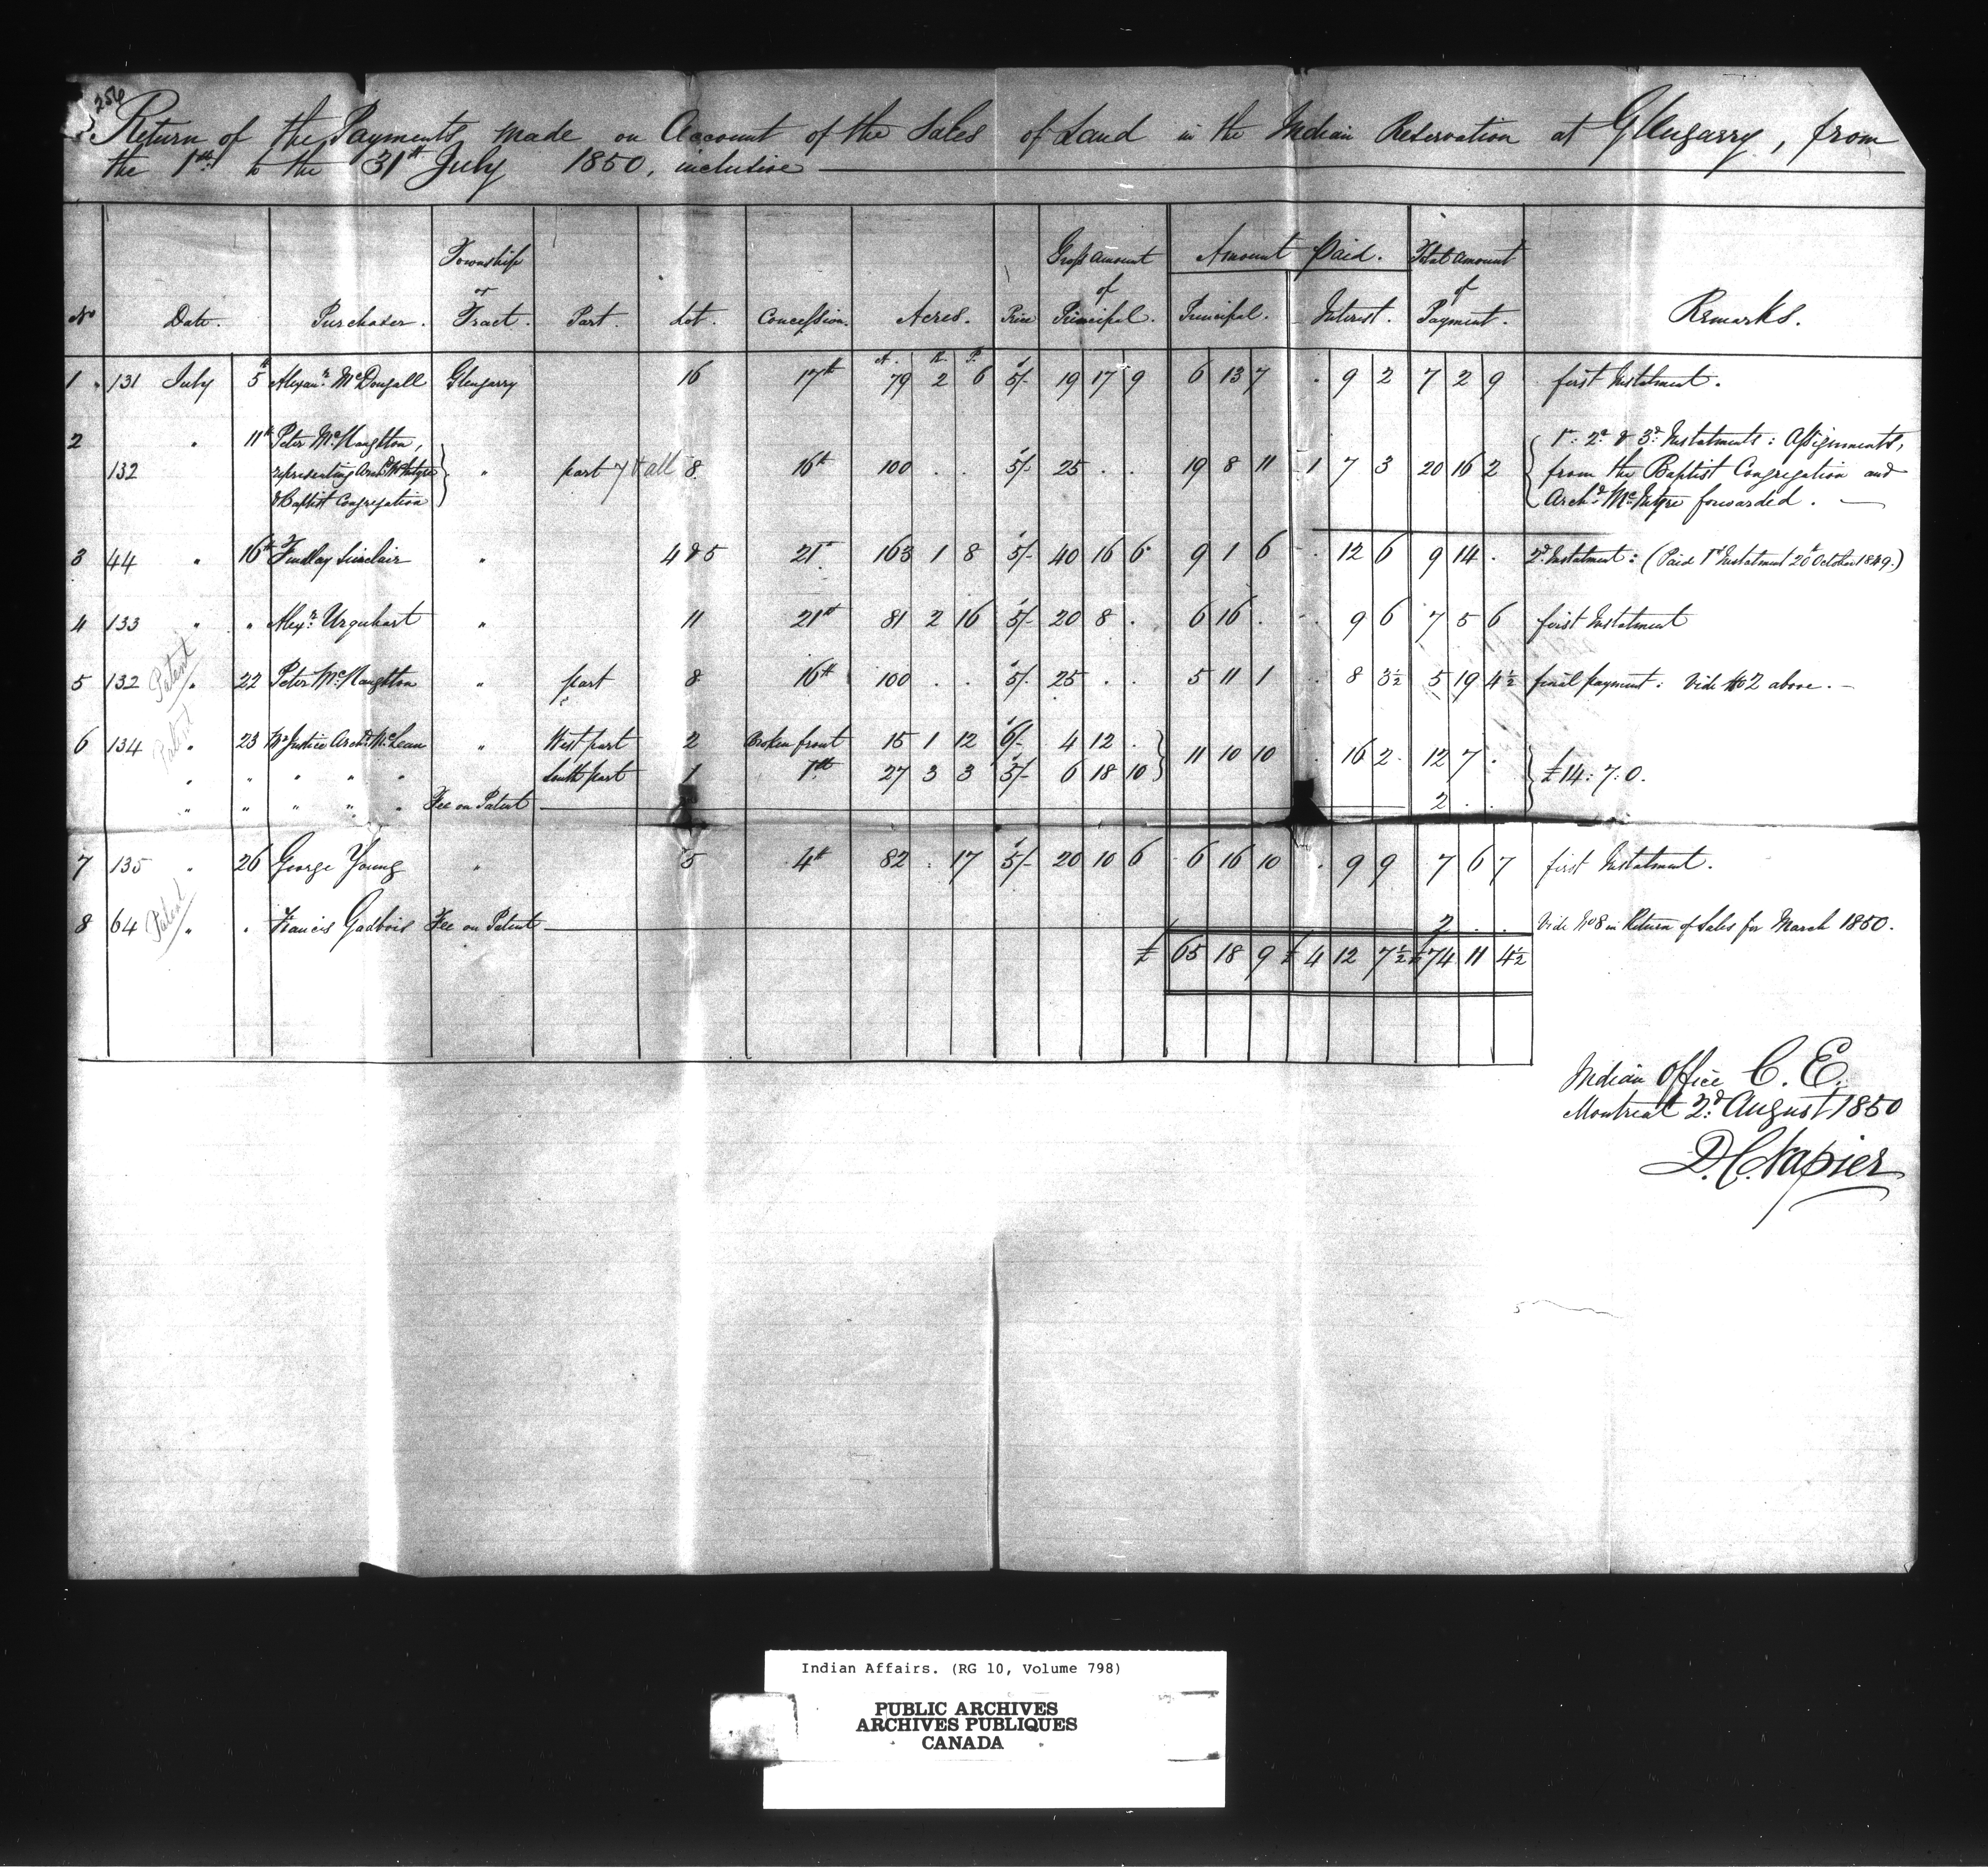 256
Return of the Payments made on Account of the Sales of Land in the Indian Reservation at Glengarry, from
the 1st to the 31st July 1850, inclusive
No Date. Purchaser. Township or Tract. Part. Lot. Concession. Acres. Price Gross Amount of Principal. Amount Paid. Principal. Interest. Total Amount of Payment. Remarks.
A. R. P.
1 131 July 5th Alexanr. McDougall Glengarry 16 17th 79 2 6 5/- 19 17 9 6 13 7 . 9 2 7 2 9 first Instalment.
2 132 " 11th Peter McNaughton, representing Archd McIntyre & Baptist Congregation } " part 7 & all 8 16th 100 . . 5/- 25 . . 19 8 11 1 7 3 20 16 2 { 1st. 2d. & 3d. Instalments: Assignments,
from the Baptist Congregation and
Archd. McIntyre forwarded. —
3 44 " 16th Findlay Sinclair " 4 & 5 21st 163 1 8 5/- 40 16 6 9 1 6 . 12 6 9 14 . 2d. Instalment: (Paid 1st Instalment 20th October 1849.)
4 133 " " Alexr. Urquhart " 11 21st 81 2 16 5/- 20 8 . 6 16 . . 9 6 7 5 6 first Instalment
Patent
5 132 " 22 Peter McNaughton " part 8 16th 100 . . 5/- 25 . . 5 11 1 . 8 3½ 5 19 4½ final payment: Vide No 2 above. —
Patent
6 134 " 23 Mr Justice Archd. McLean " West part 2 Broken front 15 1 12 6/- 4 12 . } 11 10 10 . 16 2 12 7 . } £14:7:0.
" " " " " South part 1 1st 27 3 3 5/- 6 18 10
" " " " " Fee on Patent 2 . .
7 135 " 26 George Young " 5 4th 82 . 17 5/- 20 10 6 6 16 10 . 9 9 7 6 7 first Instalment.
Patent
8 64 " " Francis Gadbois Fee on Patent 2 . . Vide No 8 in Return of Sales for March 1850.
£ 65 18 9 £ 4 12 7½ £74 11 4½
Indian Office C. E.
Montreal 2d. August 1850
D. C. Napier
Indian Affairs. (RG 10, Volume 798)
PUBLIC ARCHIVES
ARCHIVES PUBLIQUES
CANADA